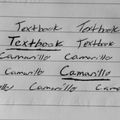 Textbook Textbook
Textbook Textbook
Camarillo Camarillo
Camarillo Camarillo
Camarillo Camarillo Cama